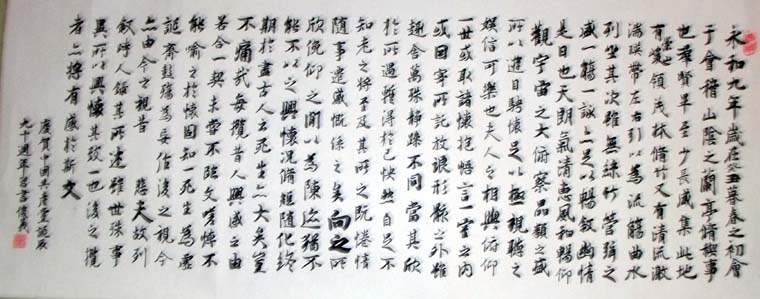 永和九年歲在癸丑暮春之初會
于會稽山陰之蘭亭脩禊事
也羣賢畢至少長咸集此地
有崇山峻領茂林脩竹又有清流激
湍暎帶左右引以為流觴曲水
列坐其次雖無絲竹管弦之
盛一觴一詠亦足以暢敘幽情
是日也天朗氣清惠風和暢仰
觀宇宙之大俯察品類之盛
所以遊目騁懷足以極視聽之
娛信可樂也夫人之相與俯仰
一世或取諸懷抱悟言一室之內
或因寄所託放浪形骸之外雖
趣舍萬殊靜躁不同當其欣
於所遇蹔得於己怏然自足不
知老之將至及其所之既惓情
隨事遷感慨係之矣向之所
欣俛仰之閒以為陳迹猶不
能不以之興懷況脩短隨化終
期於盡古人云死生亦大矣豈
不痛哉每攬昔人興感之由
若合一契未嘗不臨文嗟悼不
能喻之於懷固知一死生為虛
誕齊彭殤為妄作後之視今
亦由今之視昔 悲夫故列
敘時人錄其所述雖世殊事
異所以興懷其致一也後之攬
者亦將有感於斯文
慶賀中國共產黨誕辰
九十週年